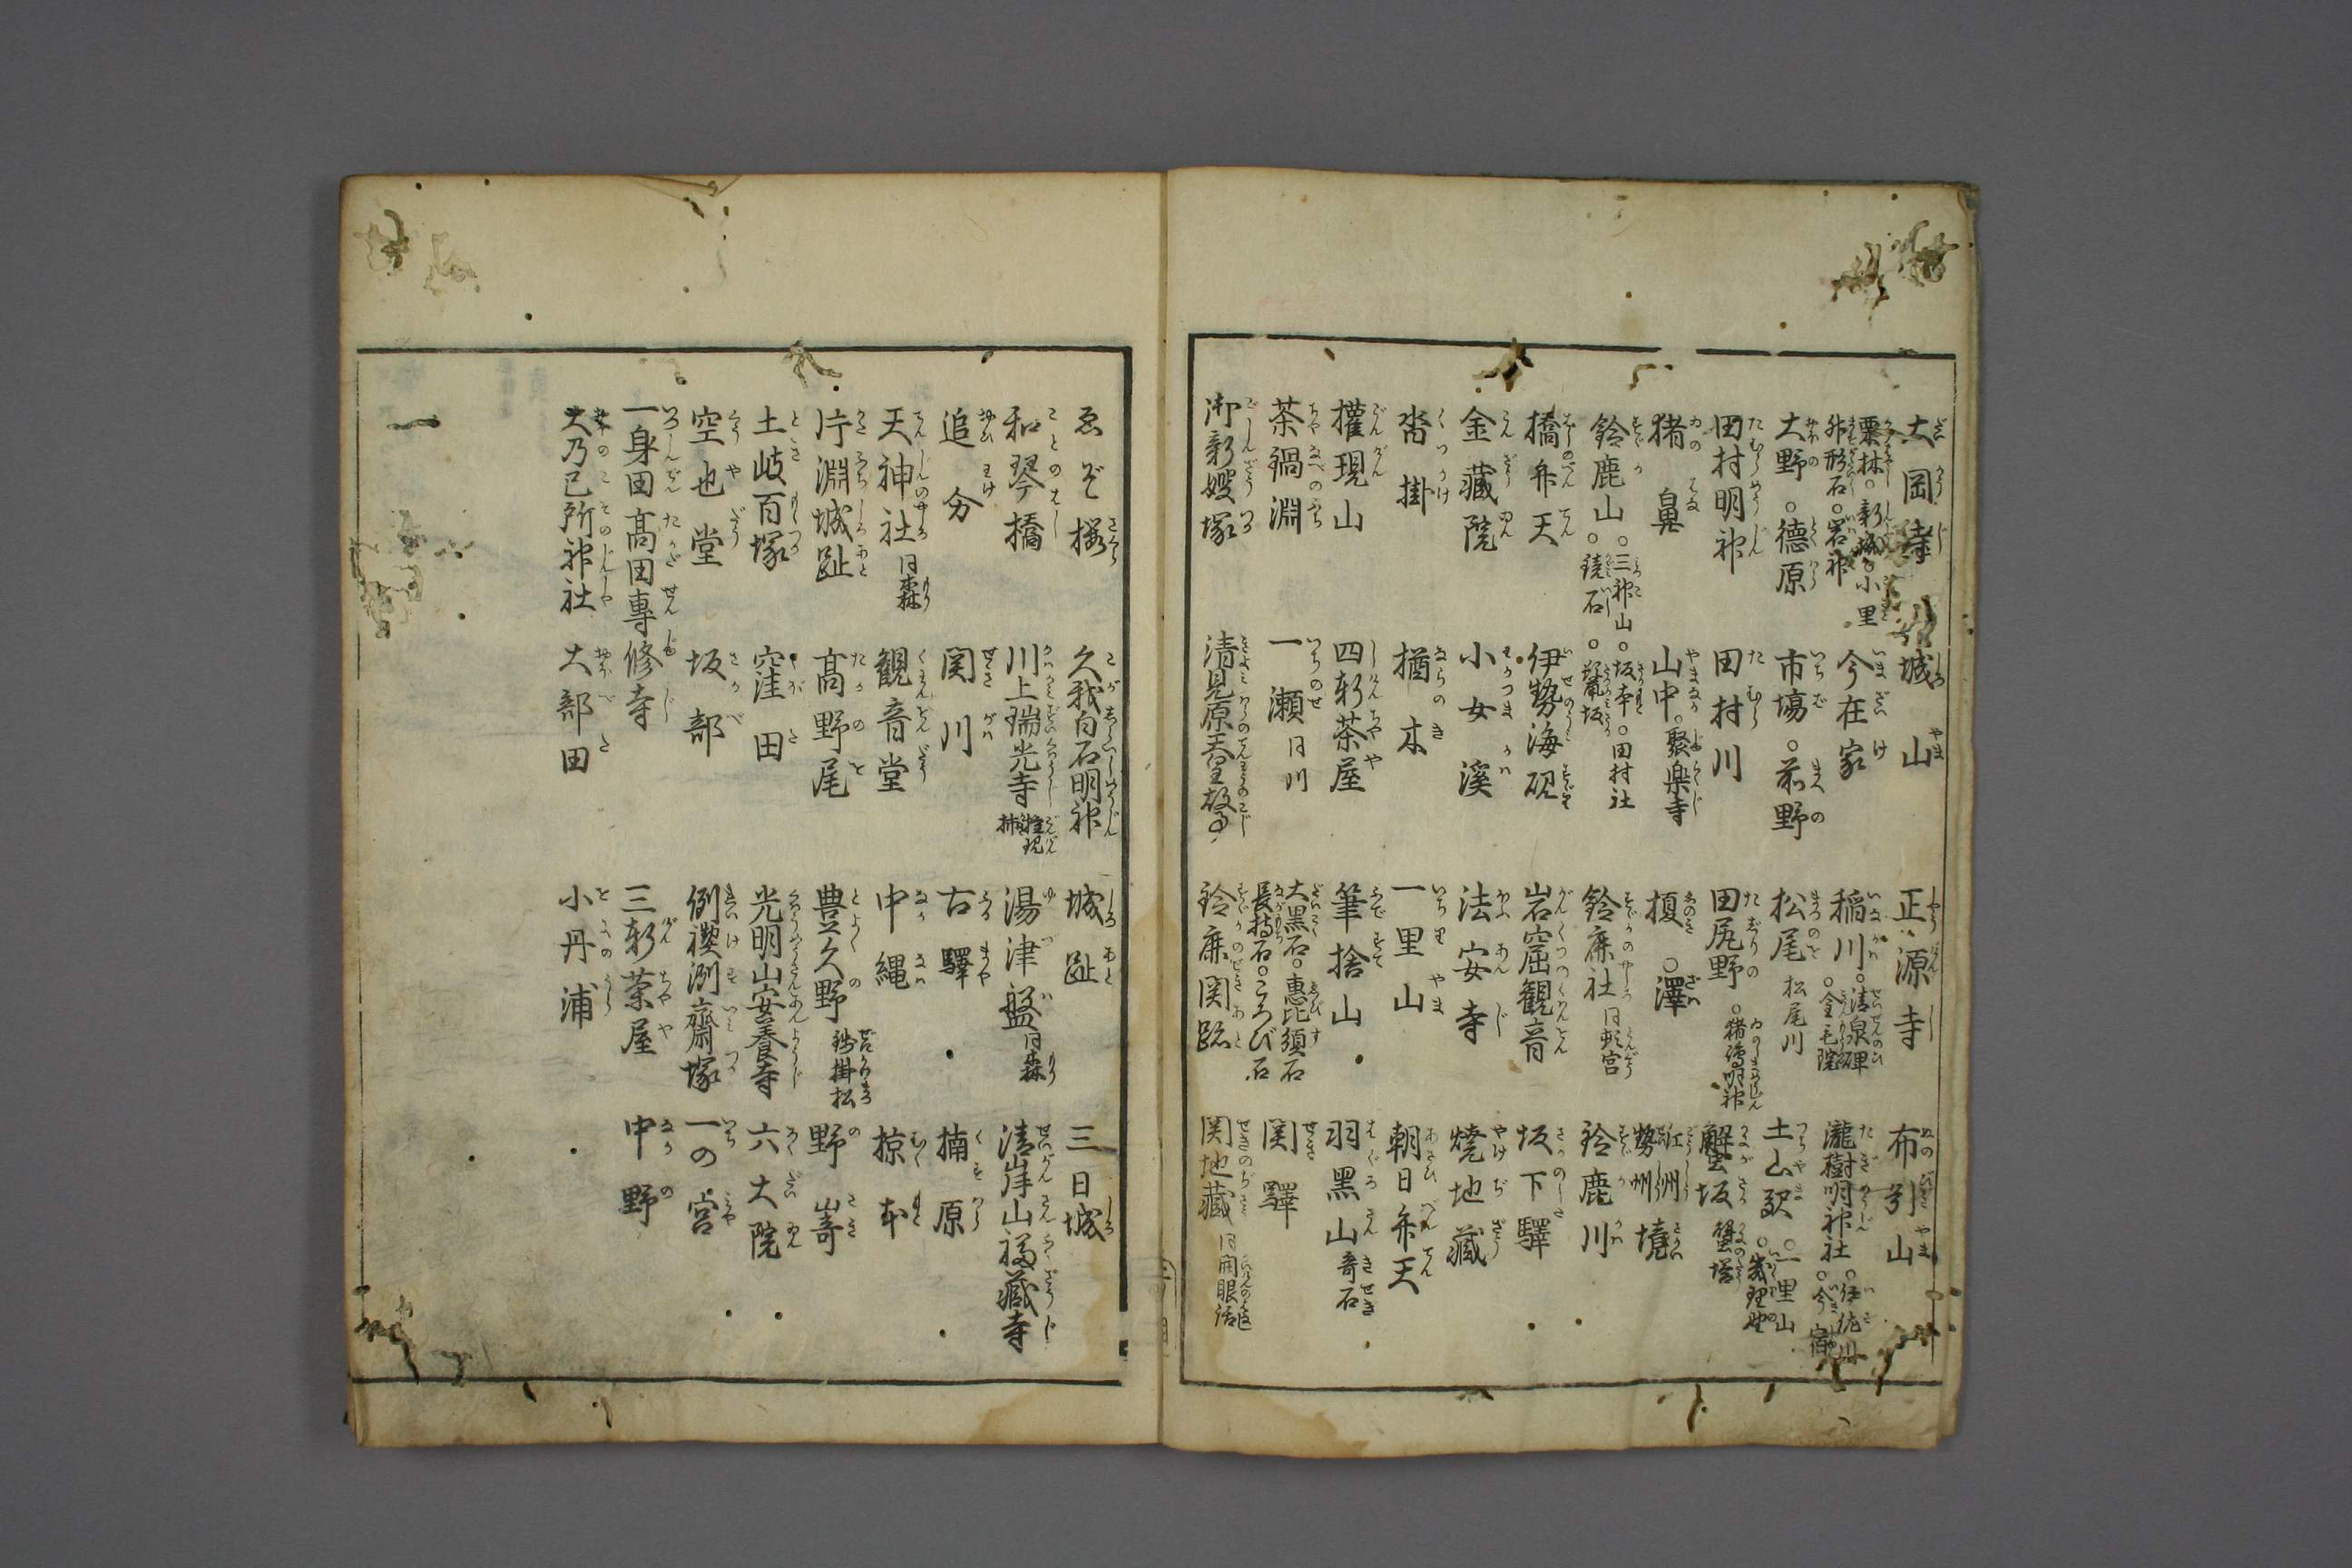 大岡寺 城山 正源寺 布引山
粟林○新城○小里 今在家 稲川○清泉碑 瀧樹明神社○伊佐川
外形石○岩神 ○金毛院 ○今宿
大野○徳原 市場○前野 松尾 松尾川 土山駅○一里山
田村明神 田村川 田尻野○猪鼻明神 蟹坂 蟹塔
猪鼻 山中○聚楽寺 榎○澤 江州勢州境
鈴鹿山○三神山○坂本○田村社 鈴鹿社 鈴鹿川
○鏡石○
橋弁天 伊勢海硯 岩窟観音 坂下驛
金藏院 小女溪 法安寺 焼地藏
沓掛 楢木 一里山 朝日弁天
權現山 四軒茶屋 筆捨山 羽黒山 奇石
茶鍋淵 一瀬 同川 大黒石○惠比須石 関驛
長持石○ころび石
御新嫂塚 清見原天皇故事 鈴鹿関跡 関地藏 同開眼話
ゑぞ桜 久我白石明神 城趾 三日城
和琴橋 川上瑞光寺 權現柿 湯津盤 同森 清岸山福藏寺
追分 関川 古驛 楠原
天神社 同森 観音堂 中縄 椋本
片淵城趾 高野尾 豊久野 銭掛松 野嵜
土岐百塚 窪田 光明山安養寺 六大院
空也堂 坂部 例禊渕齋塚 一の宮
一身田高田專修寺 三軒茶屋 中野
大乃己所神社 大部田 小丹浦
一